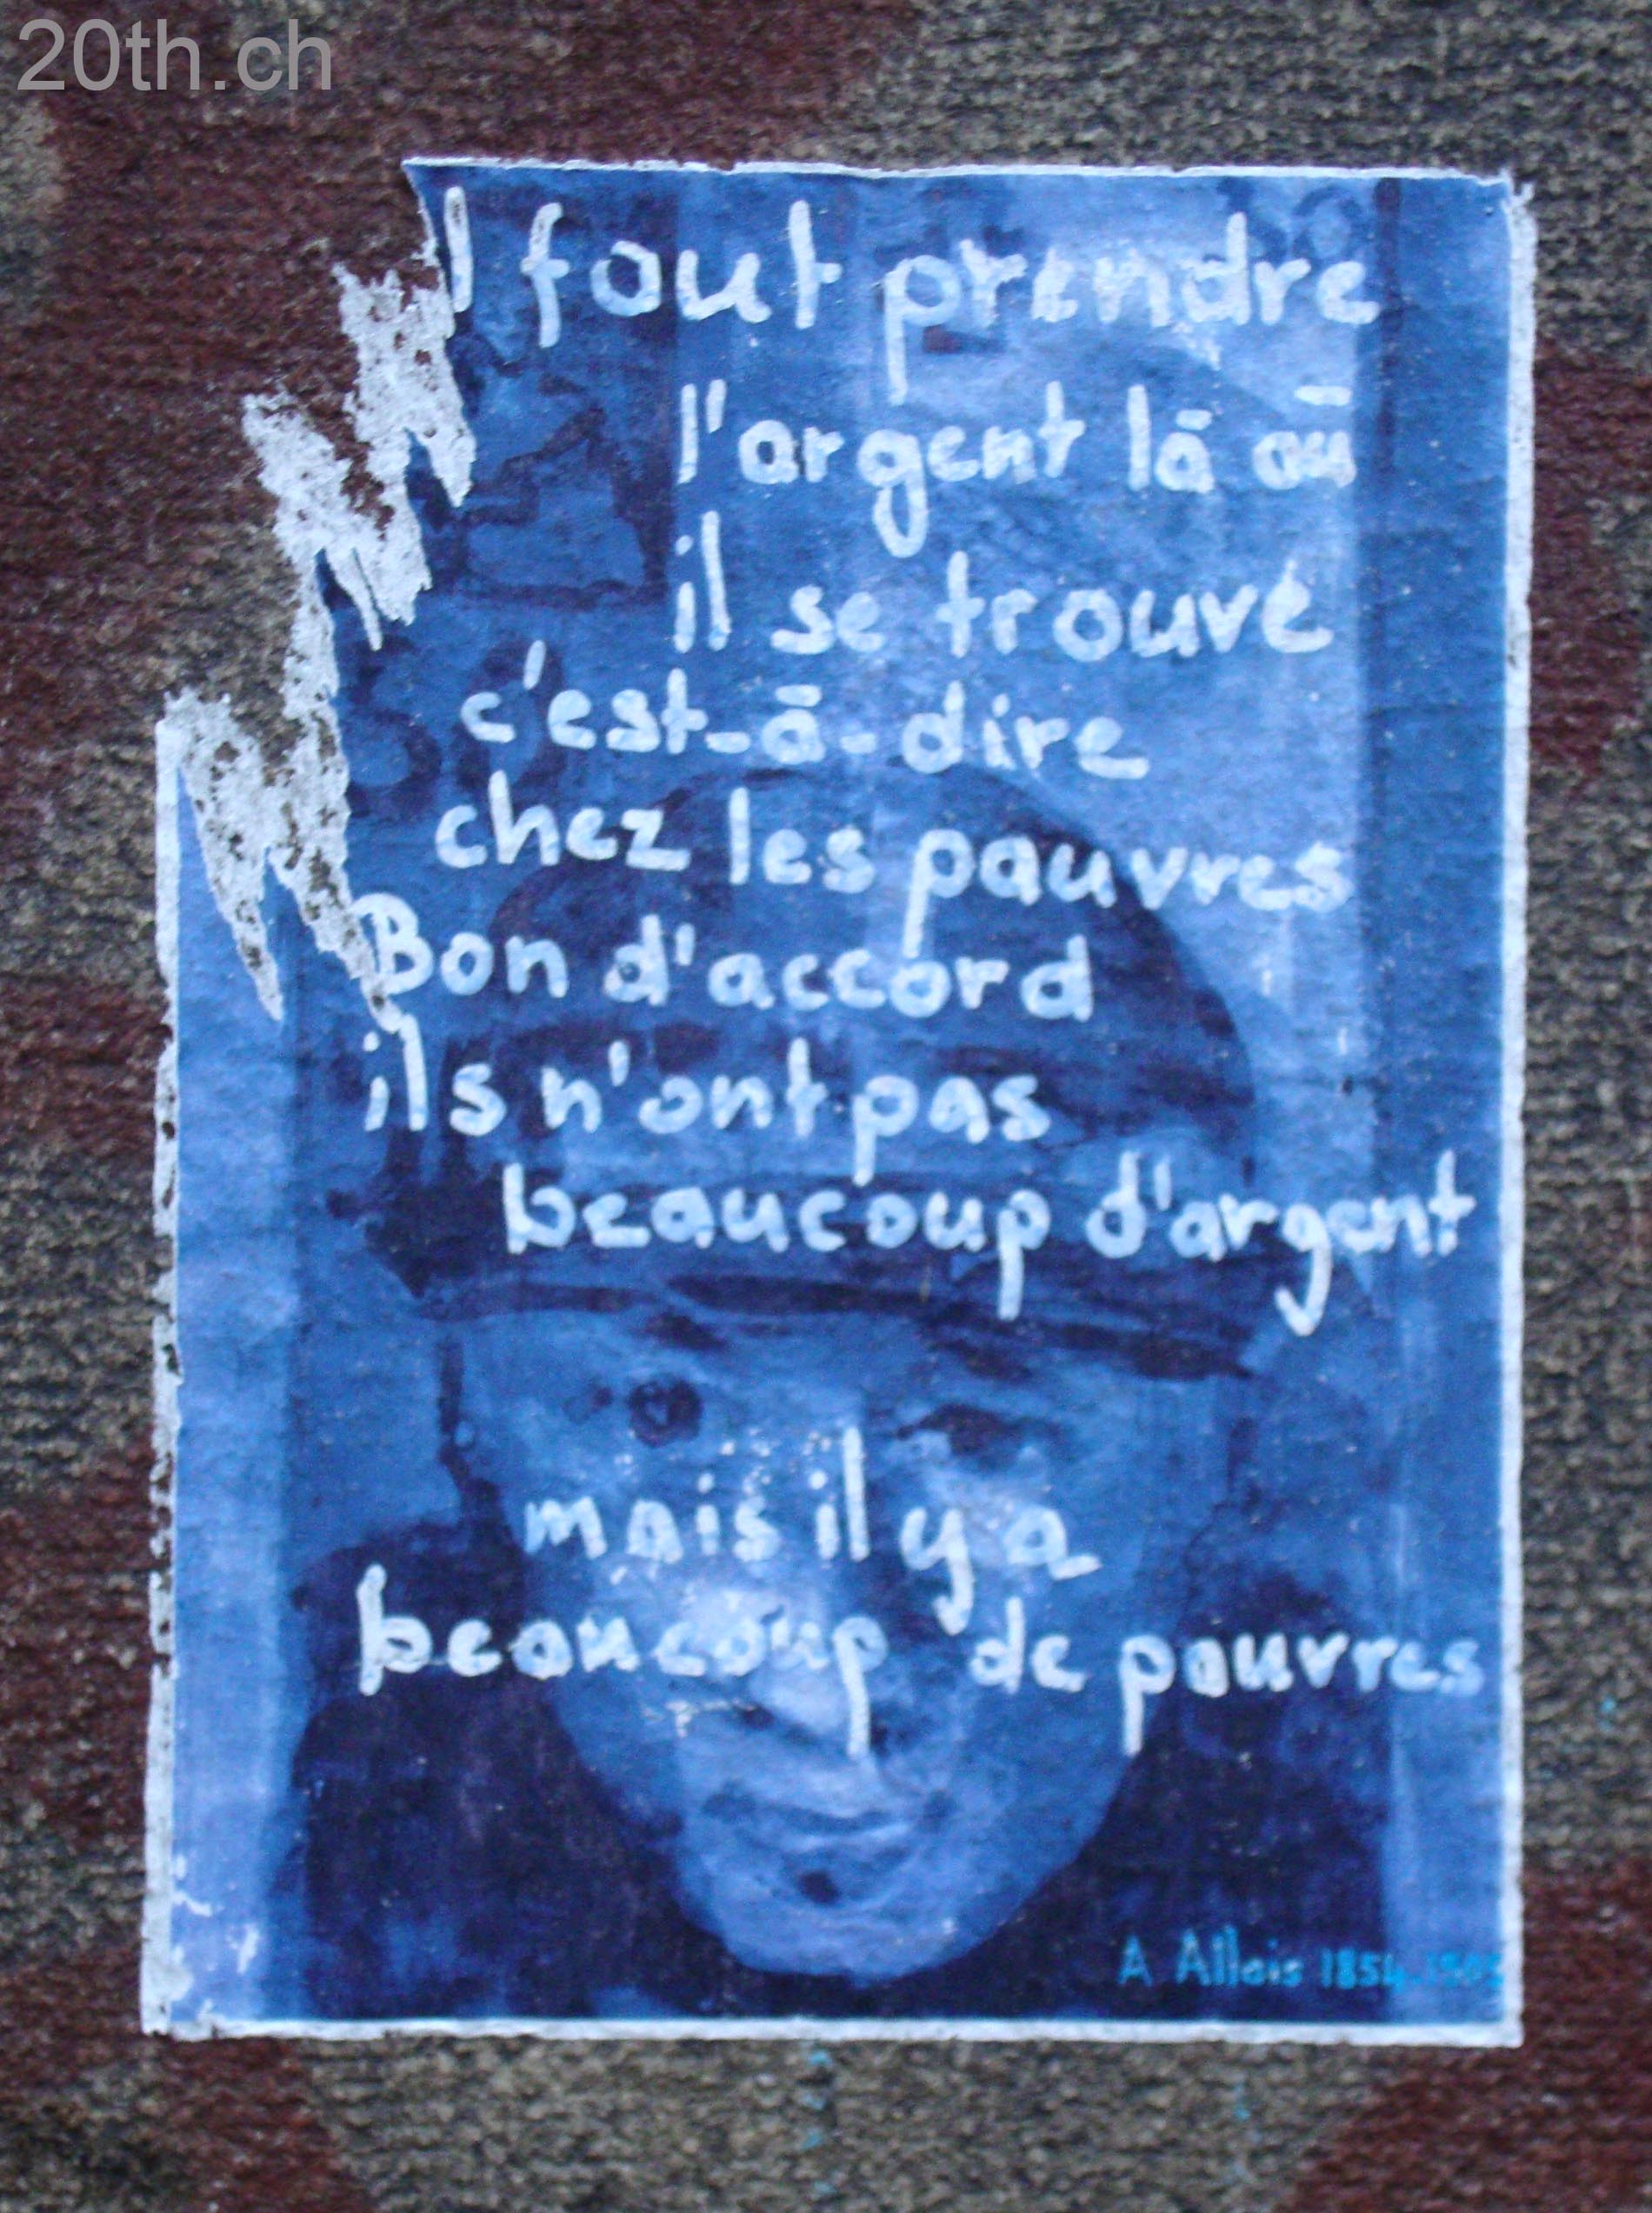 20th.ch
l faut prendre
l'argent là où
il se trouve
c'est-à-dire
chez les pauvres
Bon d'accord
ils n'ont pas
beaucoup d'argent
mais il y a
beaucoup de pauvres
A Allais 1854-1905